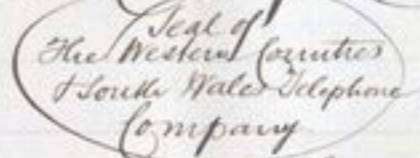 Seal of
The Western Counties
& South Wales Telephone
Company